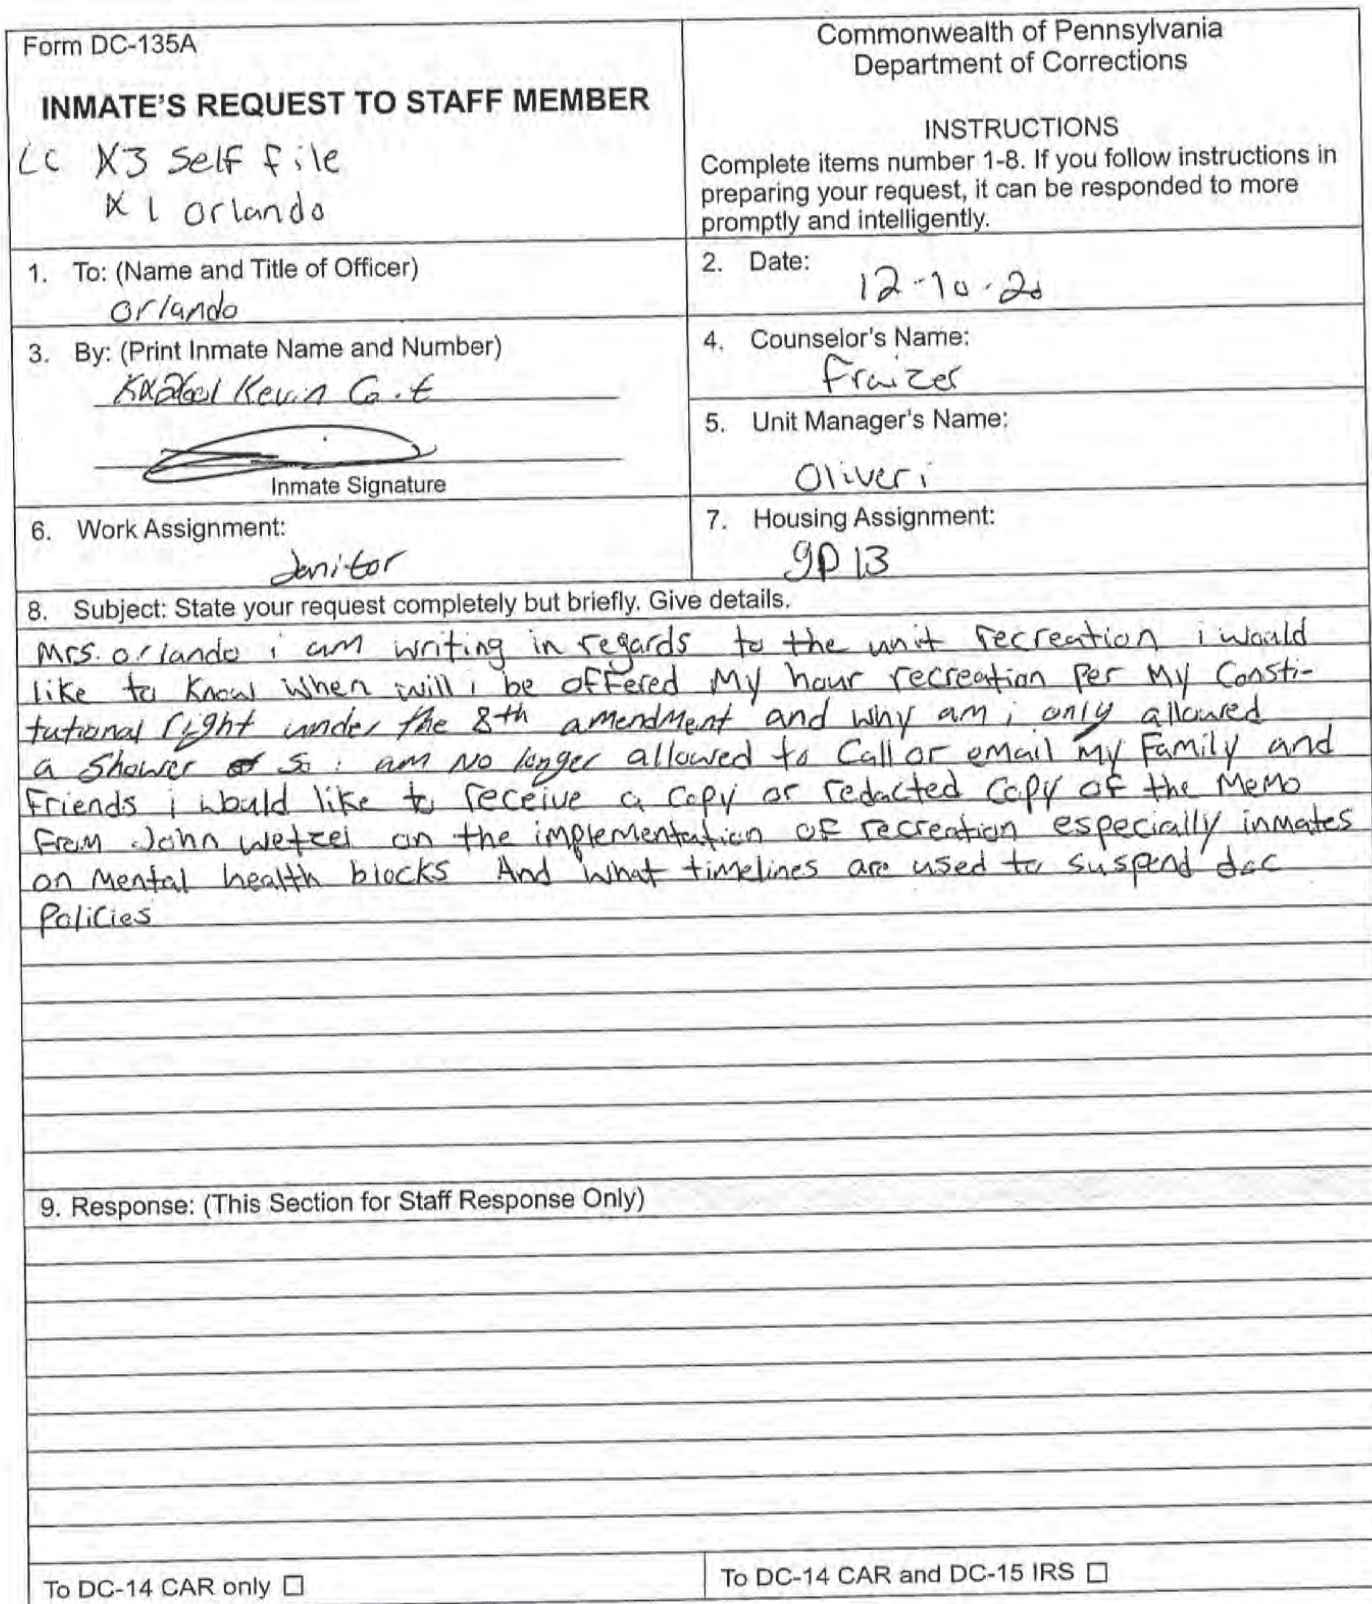 Form DC-135A
INMATE'S REQUEST TO STAFF MEMBER
CC X3 Self File
X1 Orlando
Commonwealth of Pennsylvania
Department of Corrections
INSTRUCTIONS
Complete items number 1-8. If you follow instructions in
preparing your request, it can be responded to more
promptly and intelligently.
1. To: (Name and Title of Officer)
Orlando
2. Date:
12-10-20
3. By: (Print Inmate Name and Number)
Kevin
Inmate Signature
4. Counselor's Name:
Fraizer
5. Unit Manager's Name:
Oliveri
6. Work Assignment:
Janitor
7. Housing Assignment:
9D 13
8. Subject: State your request completely but briefly. Give details.
Mrs. orlando i am writing in regards to the unit recreation i would
like to Know when will i be offered My hour recreation Per My Consti-
tutional right under the 8th amendment and why am i only allowed
a Shower So i am no longer allowed to Call or email my Family and
Friends i would like to receive a Copy or redacted Copy of the Memo
From John wetzel on the implementation of recreation especially inmates
on mental health blocks And what timelines are used to suspend doc
Policies
9. Response: (This Section for Staff Response Only)
To DC-14 CAR only ☐
To DC-14 CAR and DC-15 IRS ☐